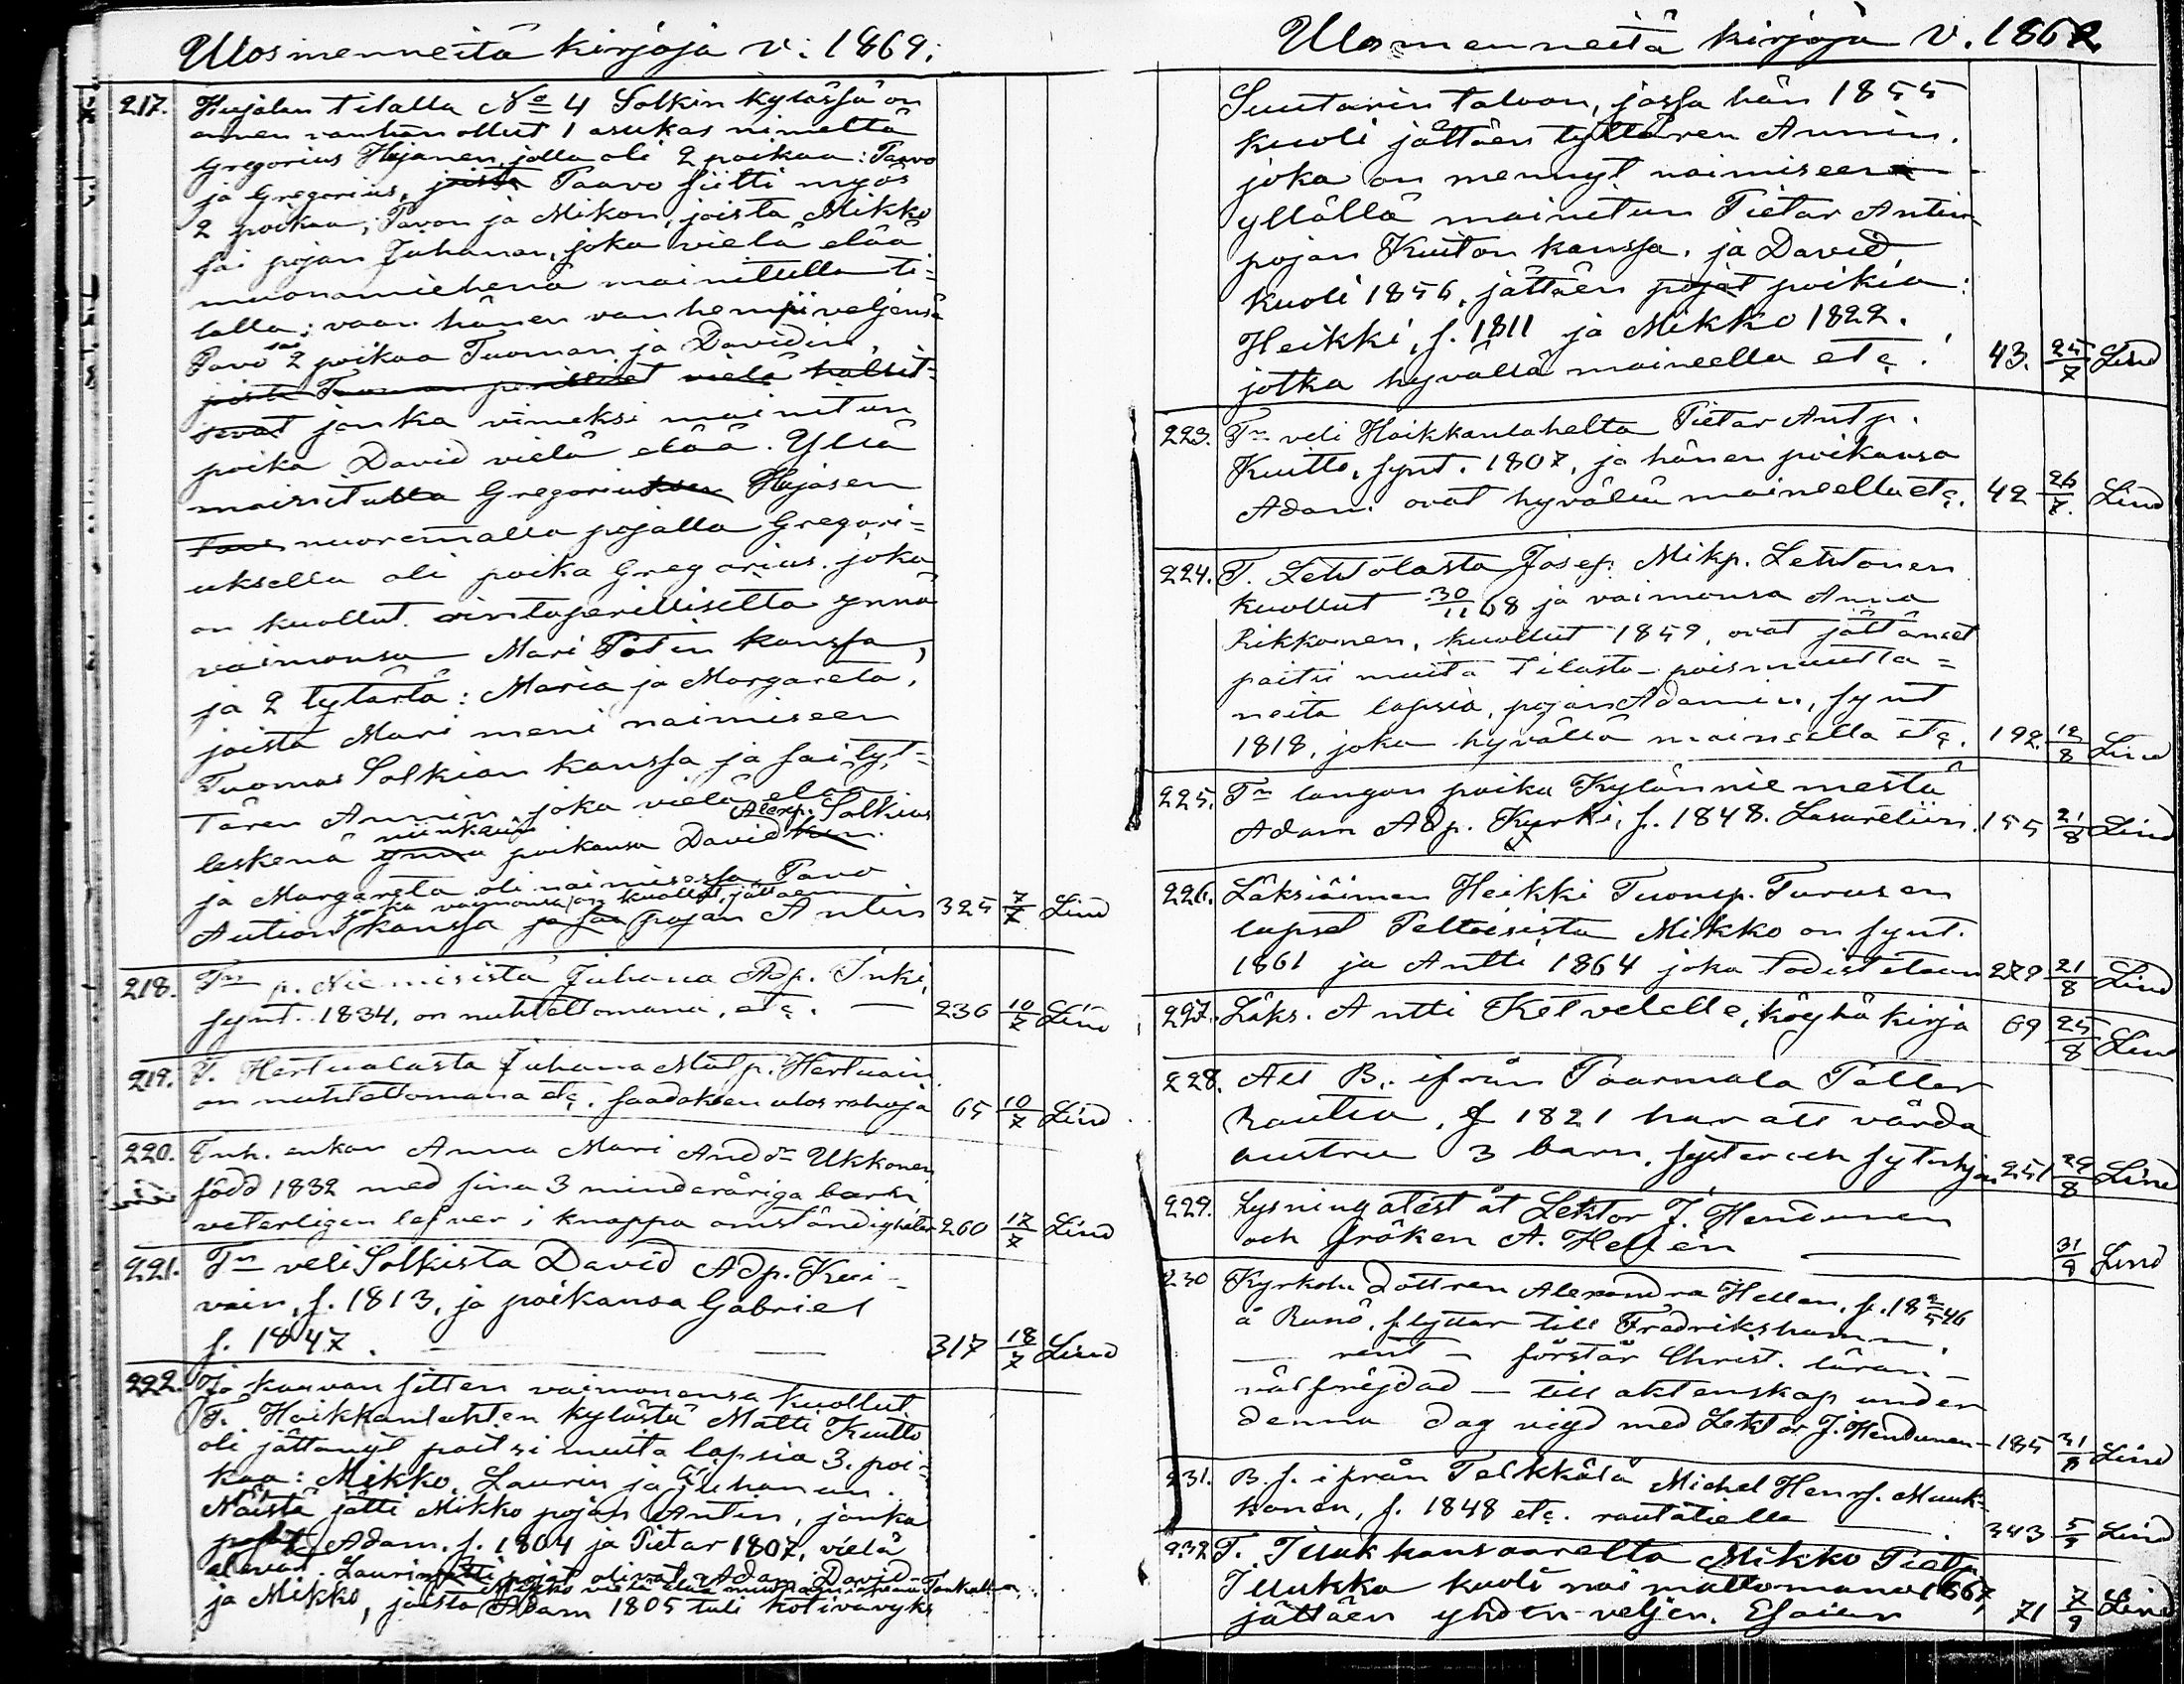 Ulosmenneitä kirjoja v: 1869.
217. Hujalan tilalla No 4 Solkin kylässä on
ennen vanhan ollut 1 asukas nimeltä
Gregorius Hujanen, jolla oli 2 poikaa: Paavo
ja Gregorius, joista Paavo siitti myös
2 poikaa; Pavon ja Mikon, joista Mikko
sai pojan Juhanan, joka vielä elää
muonamiehenä mainitulla ti=
lalla; vaan hänen vanhempi veljensä
Pavo sai 2 poikaa Tuoman ja Davidin,
joista Tuoman perilliset vielä hallit=
sevat jonka viimeksi mainitun
poika David vielä elää. Yllä
mainitulla Gregorius Hujasen
nuoremalla pojalla Gregori=
uksella oli poika Gregorius. joka
on kuollut rintaperillisettä ynnä
vaimonsa Mari Potin kanssa,
ja 2 tytärtä: Maria ja Margareta,
joista Mari meni naimiseen
Tuomas Solkian kanssa ja sai tyt=
tären Annin, joka vielä elää
leskenä niinkuin ynnä poikansa David Alexp. Solkius
ja Margareta oli naimisessa Pavo
joka vaimonsa on kuollut, jättäen
Aution kanssa ja sai pojan Antin 325 7/7 Lind
218. Tn p. Niemisistä Juhana Adp. Inki,
synt. 1834, on nuhtettomana, etc. — 236 10/7 Lind
219. T. Hertualasta Juhana Matp. Hertuain
on nuhtettomana etc. saadakseen ulos rahoja 65 10/7 Lind
220. Inh. enkan Anna Mari Anddr Ukkonen,
född 1832 med sina 3 minderåriga barn,
veterligen lefver i knappa omständigheter 260 17/7 Lind
221. Tn veli Solkista David Adp. Kui-
vain, s. 1813, ja poikansa Gabriel
s. 1847. — — 317 18/7 Lind
222. Jo kauvan sitten vaimonensa kuollut
T. Haikkanlahten kylästä Matti Kuitto
oli jättänyt paitsi muita lapsia 3. poi=
kaa: Mikko, Laurin ja Juhanan.
Näistä jätti Mikko pojan Antin, jonka
pojat Adam, s. 1804 ja Pietar 1807, vielä
elävät. Laurin pojat olivat Adam, David
Mikko vielä elää
ja Mikko, joista Adam 1805 tuli kotivävyks
Ulosmenneitä kirjoja v. 1862
Suutarin taloon, jossa hän 1855
kuoli jättäen tyttären Annin.
joka on mennyt naimiseen
yllällä mainitun Pietar Antin
pojan Kuiton kanssa. ja David,
kuoli 1856, jättäen pojat poikia:
Heikki, s. 1811 ja Mikko 1822.
jotka hyvällä maineella etc. 43. 25/7 Lind
223. Tn veli Haikkanlahelta Pietar Antp.
Kuitto, synt. 1807, ja hänen poikansa
Adam ovat hyvällä maineella etc. 42 26/7. Lind
224. T. Lehtolasta Josep. Mikp. Lehtonen
kuollut 30/11 68 ja vaimonsa Anna
Rikkonen, kuollut 1859, ovat jättäneet
paitsi muita tilasta poismuutta=
neita lapsia, pojan Adamin, synt
1818, joka hyvällä maineella etc. 192. 12/8 Lind
225. Tn langon poika Kylänniemestä
Adam Adp. Kyrki, s. 1848. Lasarettiin. 155 21/8 Lind
226. Läksiäimen Heikki Tuomp. Turusen
lapset Peltoisista Mikko on synt.
1861 ja Antti 1864 joka todistetaan 279 21/8 Lind
227. Läks. Antti Ketvelelle, köyhä kirja 69 25/8 Lind
228. Att B. ifrån Paarmala Petter
Rautia, f 1821 har att vårda
hustru 3 barn, syster och 251 29/8 Lind
229. Lysningatest åt Lektor J. Hendunen
och fröken A. Hellén — 31/8 Lind
230 Kyrkoh. dottren Alexandra Hellen, f. 18 2/5 46
å Runö, flyttar till Fredrikshamn
— rent — förstår Christ. läran
välfrejdad — till äktenskap under
denna dag vigd med Lektor J. Hendunen — 185 31/8 Lind
231. B. s. ifrån Telkkälä Michel Henrs. Muuk-
konen, f. 1848 etc. rautatielle — 343 5/9 Lind
232 T. Iluukkansaarelta Mikko Piet.
Iluukka kuoli naimattomana 1867,
jättäen yhden veljen, Esaian 71 7/9 Lind